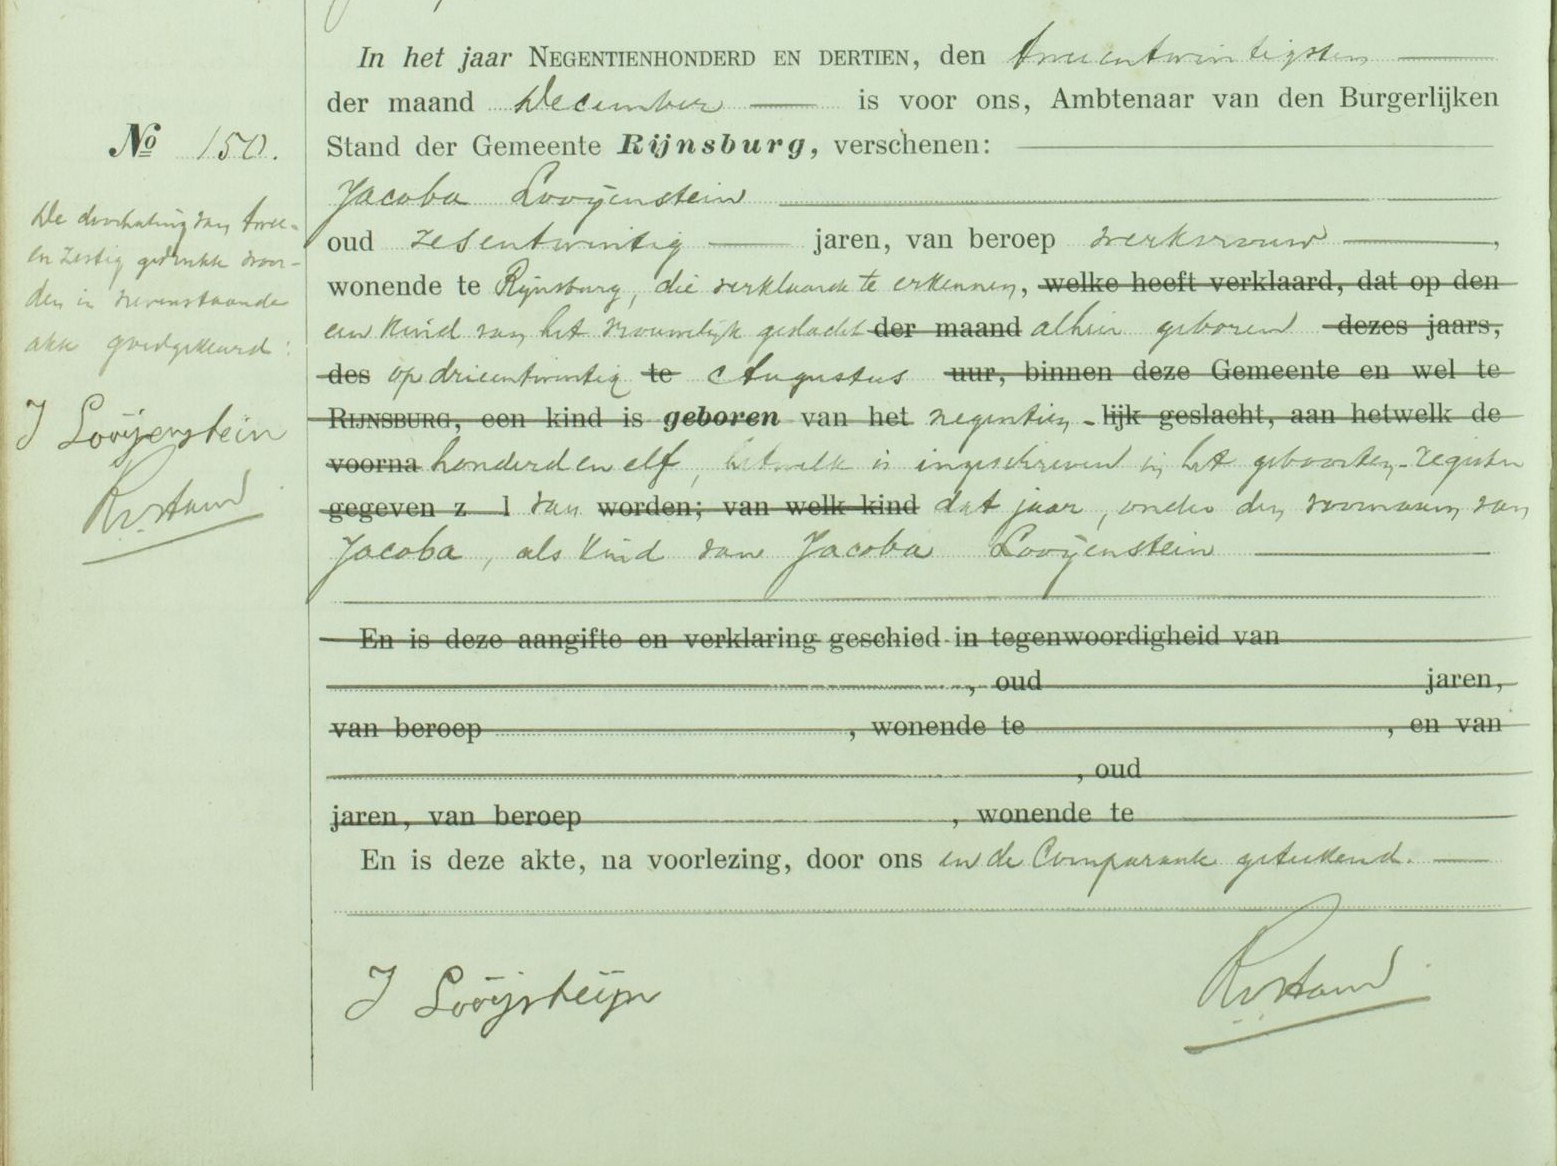 In het jaar NEGENTIENHONDERD EN DERTIEN, den tweeentwintigsten
der maand December is voor ons, Ambtenaar van den Burgerlijken
Stand der Gemeente Rijnsburg, verschenen:
Jacoba Looijenstein
oud zesentwintig jaren, van beroep werkvrouw,
wonende te Rijnsburg, die verklaarde te erkennen, welke heeft verklaard, dat op den
een kind van het vrouwelijk geslacht der maand alhier geboren dezes jaars,
des op drieentwintig te Augustus uur, binnen deze Gemeente en wel te
RIJNSBURG, een kind is geboren van het negentien- lijk geslacht, aan hetwelk de
voorna honderd en elf, hetwelk is ingeschreven in het geboorten-register
gegeven z l van worden; van welk kind dat jaar, onder den voornaam van
Jacoba, als kind van Jacoba Looijenstein
En is deze aangifte en verklaring geschied in tegenwoordigheid van
, oud jaren,
van beroep , wonende te , en van
, oud
jaren, van beroep , wonende te
En is deze akte, na voorlezing, door ons en de Comparante geteekend.
J Looijsteijn
No 150.
De doorhaling van twee-
en zestig gedrukte woor-
den in nevenstaande
akte goedgekeurd:
J Looijenstein